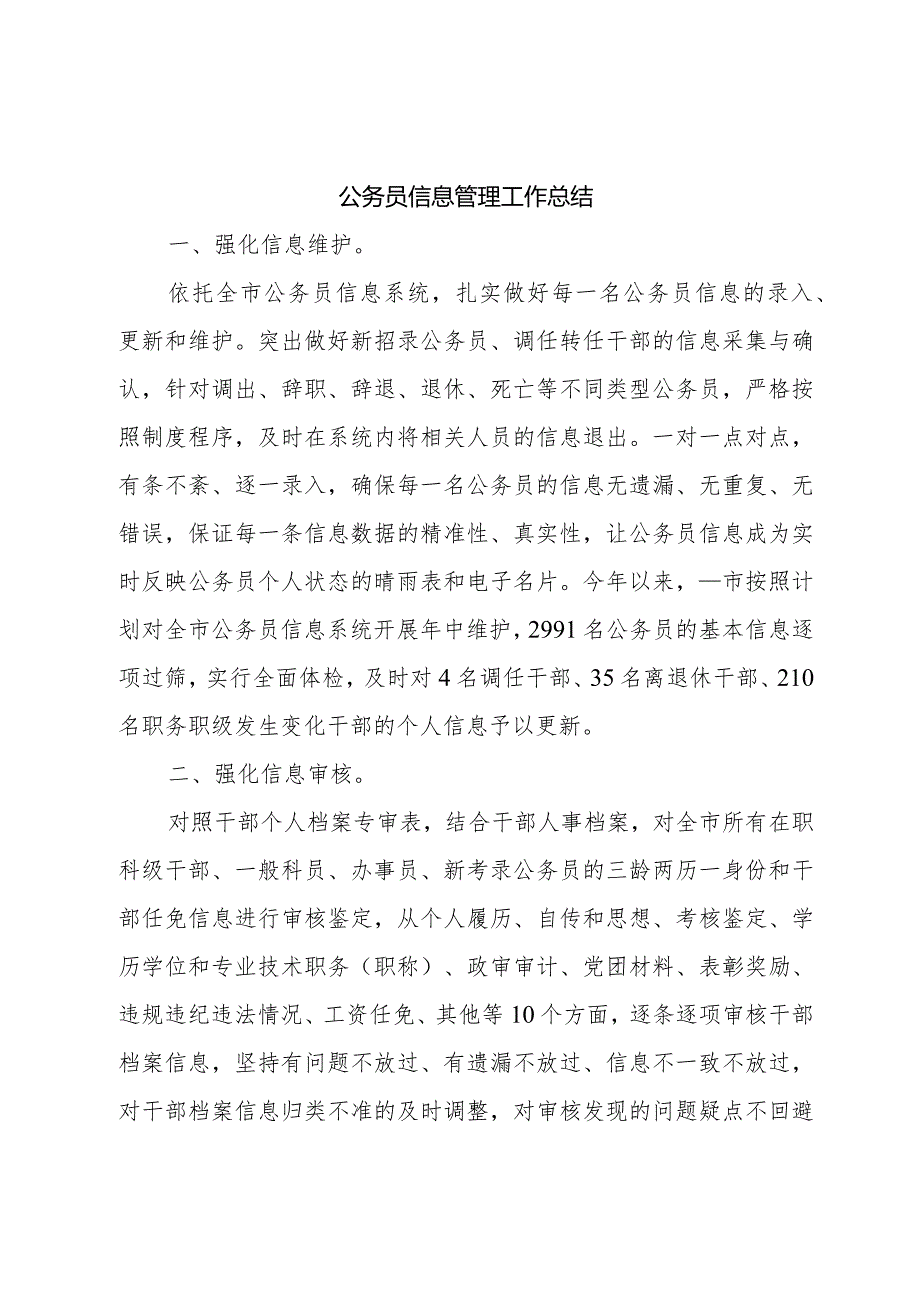 公务员信息管理工作总结
一、强化信息维护。
依托全市公务员信息系统，扎实做好每一名公务员信息的录入、
更新和维护。突出做好新招录公务员、调任转任干部的信息采集与确
认，针对调出、辞职、辞退、退休、死亡等不同类型公务员，严格按
照制度程序，及时在系统内将相关人员的信息退出。一对一点对点，
有条不紊、逐一录入，确保每一名公务员的信息无遗漏、无重复、无
错误，保证每一条信息数据的精准性、真实性，让公务员信息成为实
时反映公务员个人状态的晴雨表和电子名片。今年以来，—市按照计
划对全市公务员信息系统开展年中维护，2991 名公务员的基本信息逐
项过筛，实行全面体检，及时对 4 名调任干部、35 名离退休干部、210
名职务职级发生变化干部的个人信息予以更新。
二、强化信息审核。
对照干部个人档案专审表，结合干部人事档案，对全市所有在职
科级干部、一般科员、办事员、新考录公务员的三龄两历一身份和干
部任免信息进行审核鉴定，从个人履历、自传和思想、考核鉴定、学
历学位和专业技术职务（职称）、政审审计、党团材料、表彰奖励、
违规违纪违法情况、工资任免、其他等 10 个方面，逐条逐项审核干部
档案信息，坚持有问题不放过、有遗漏不放过、信息不一致不放过，
对干部档案信息归类不准的及时调整，对审核发现的问题疑点不回避